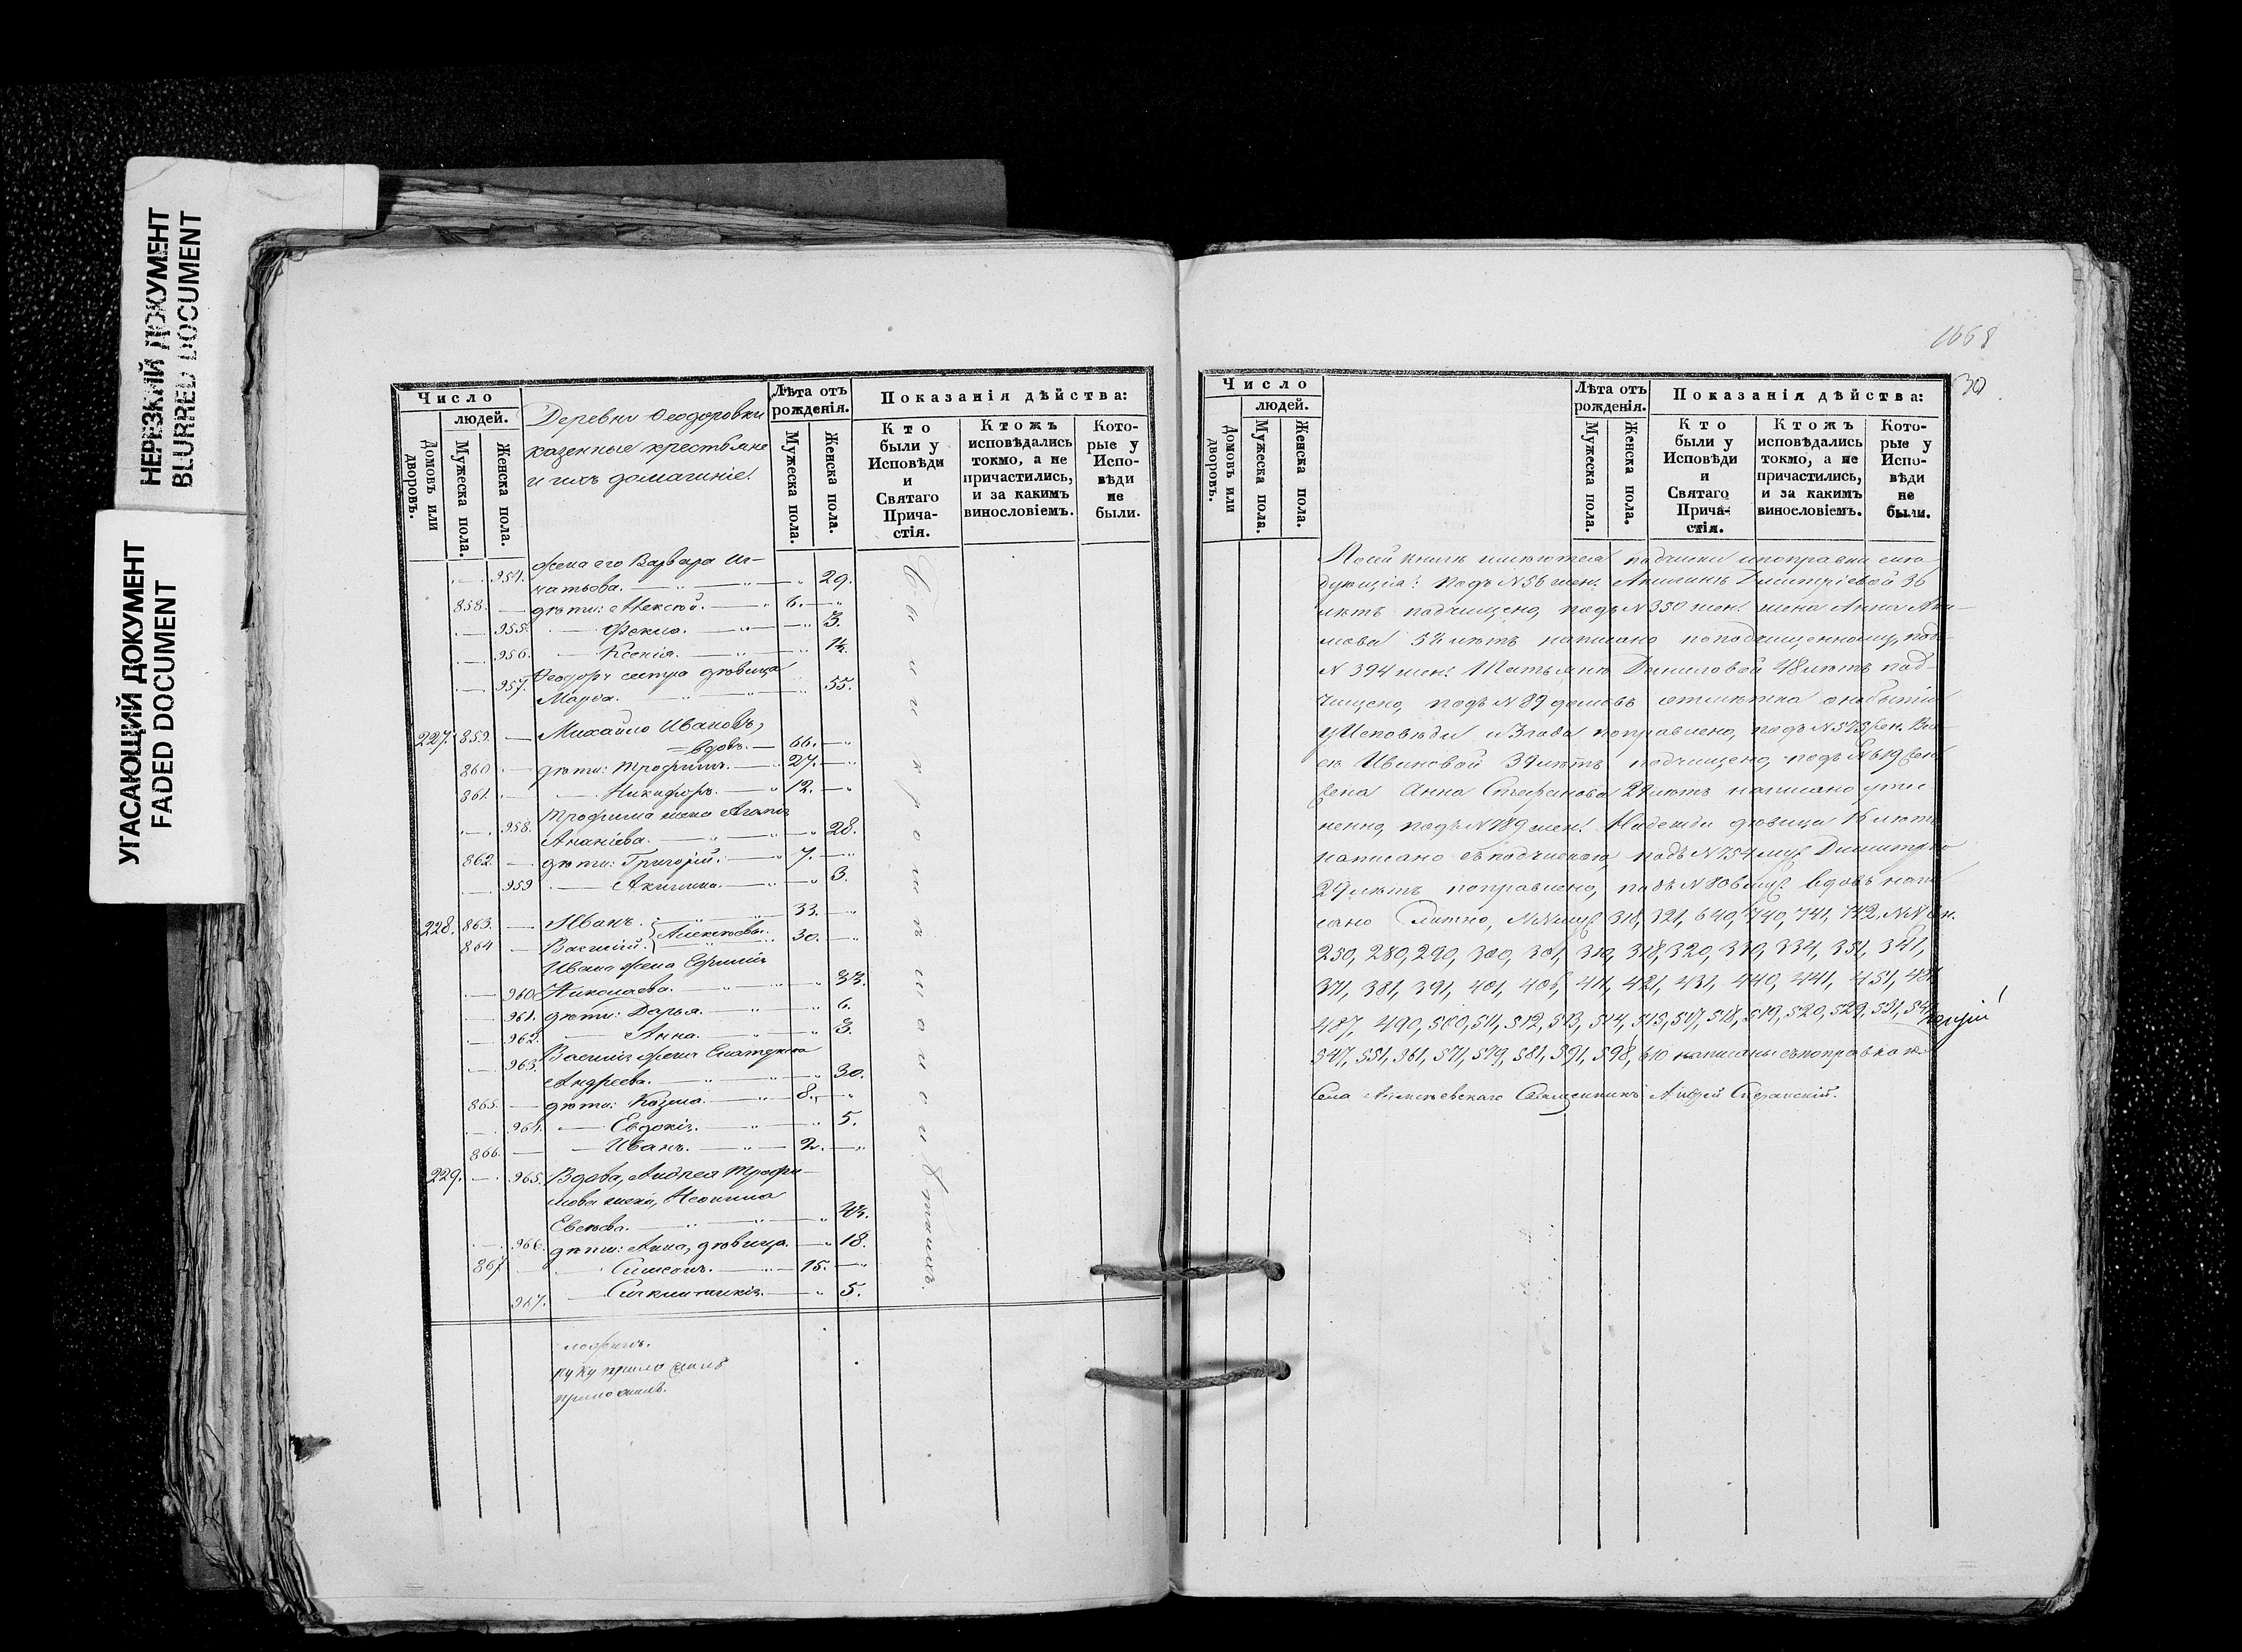 НЕРЕЗКИЙ ДОКУМЕНТ
BLURRED DOCUMENT
УГАСАЮЩИЙ ДОКУМЕНТ
FADED DOCUMENT
Число
людей.
Домовъ или дворовъ.
Мужеска пола.
Женска пола.
Деревни Ѳеодоровки
казенные крестьяне
и ихъ домашніе.
Лѣта отъ рожденія.
Мужеска пола.
Женска пола.
Показанія дѣйства:
Кто были у Исповѣди и Святаго Прича- стія.
Ктожъ исповѣдались токмо, а не причастились, и за какимъ винословіемъ.
Кото- рые у Испо- вѣди не были.
954. жена его Варвара Иг-
натьева. 29.
858. дѣти: Алексѣй. 6.
955. Ѳекла. 3.
956. Ксенія.
957. Ѳеодора сестра дѣвица
Марѳа. 55.
227. 859. Михайло Ивановъ,
вдовъ. 66.
860 дѣти: Трофимъ. 27.
861. Никифоръ. 12.
958. Трофима жена Агапія
Ананіева. 28.
862. дѣти: Григорій. 7.
959 Акилина. 3.
228. 863. Иванъ. Алексѣевы. 33.
864 Василій. 30.
Ивана жена Евфимія
960 Николаева. 33.
961. дѣти: Дарья. 6.
962. Анна. 3.
963. Василія жена Екатерина
Андреева. 30.
865. дѣти: Козма. 8.
964. Евдокія. 5.
866. Иванъ. 2.
229. 965. Вдова, Андрея Трофи-
мова жена, Неонила
Евсѣева. 43.
966. дѣти: Анна, дѣвица. 18.
867 Симеонъ. 15.
967. 5.
руку приложилъ
приложилъ.
1668
30
Число
людей.
Домовъ или дворовъ.
Мужеска пола.
Женска пола.
Лѣта отъ рожденія.
Мужеска пола.
Женска пола.
Показанія дѣйства:
Кто были у Исповѣди и Святаго Прича- стія.
Ктожъ исповѣдались токмо, а не причастились, и за какимъ винословіемъ.
Кото- рые у Испо- вѣди не были.
По сей книгѣ имѣются подчистки и поправки слѣ-
дующія: Подъ N 56 жен. Акилинѣ Димитріевой 36
лѣтъ подчищено, подъ N 350 жен. жена Анна Аки-
мова 58 лѣтъ написано по подчищенному, подъ
N 394 жен. Татьянѣ Даниловой 48 лѣтъ под-
чищено, подъ N 89 домовъ отмѣтка о небытіи
у Исповѣди 3 года поправлено, подъ N 575 жен.
Ивановой 39 лѣтъ подчищено, подъ N 619 жен.
жена Анна Стефанова 29 лѣтъ написано
подъ N 789 жен. Надежда дѣвица 16 лѣтъ
написано съ подчисткою, подъ N 754 муж. Димитрію
29 лѣтъ поправлено, подъ N 806 муж. вдовъ напи-
сано NN муж. 318, 321, 640, 740, 741, 742. NN жен.
250, 280, 290, 300, 301, 310, 318, 320, 330, 334, 351, 341,
371, 381, 391, 401, 406, 411, 421, 431, 440, 441, 451, 481
487, 490, 500, 511, 512, 513, 514, 515, 517, 518, 519, 520, 529, 531, 541
547, 551, 561, 571, 579, 581, 591, 598, 610 написаны съ поправкою.
Села Алексѣевскаго Священникъ Андрей